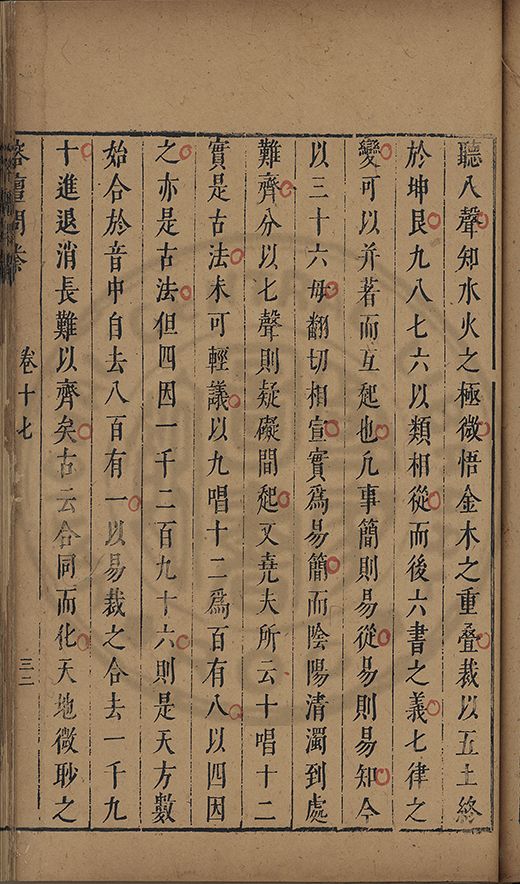 聽八聲知水火之極微悟金木之重疊裁以五土終
於坤艮九八七六以類相從而後六書之義七律之
變可以并著而互起也凡事簡則易從易則易知今
以三十六母翻切相宣實爲易簡而陰陽清濁到處
難齊分以七聲則疑礙間起又堯夫所云十唱十二
實是古法未可輕議以九唱十二爲百有八以四因
之亦是古法但四因一千二百九十六則是天方數
始合於音中自去八百有一以易裁之合去一千九
十進退消長難以齊矣古云合同而化天地微眇之
榕壇問業
卷十七
三二